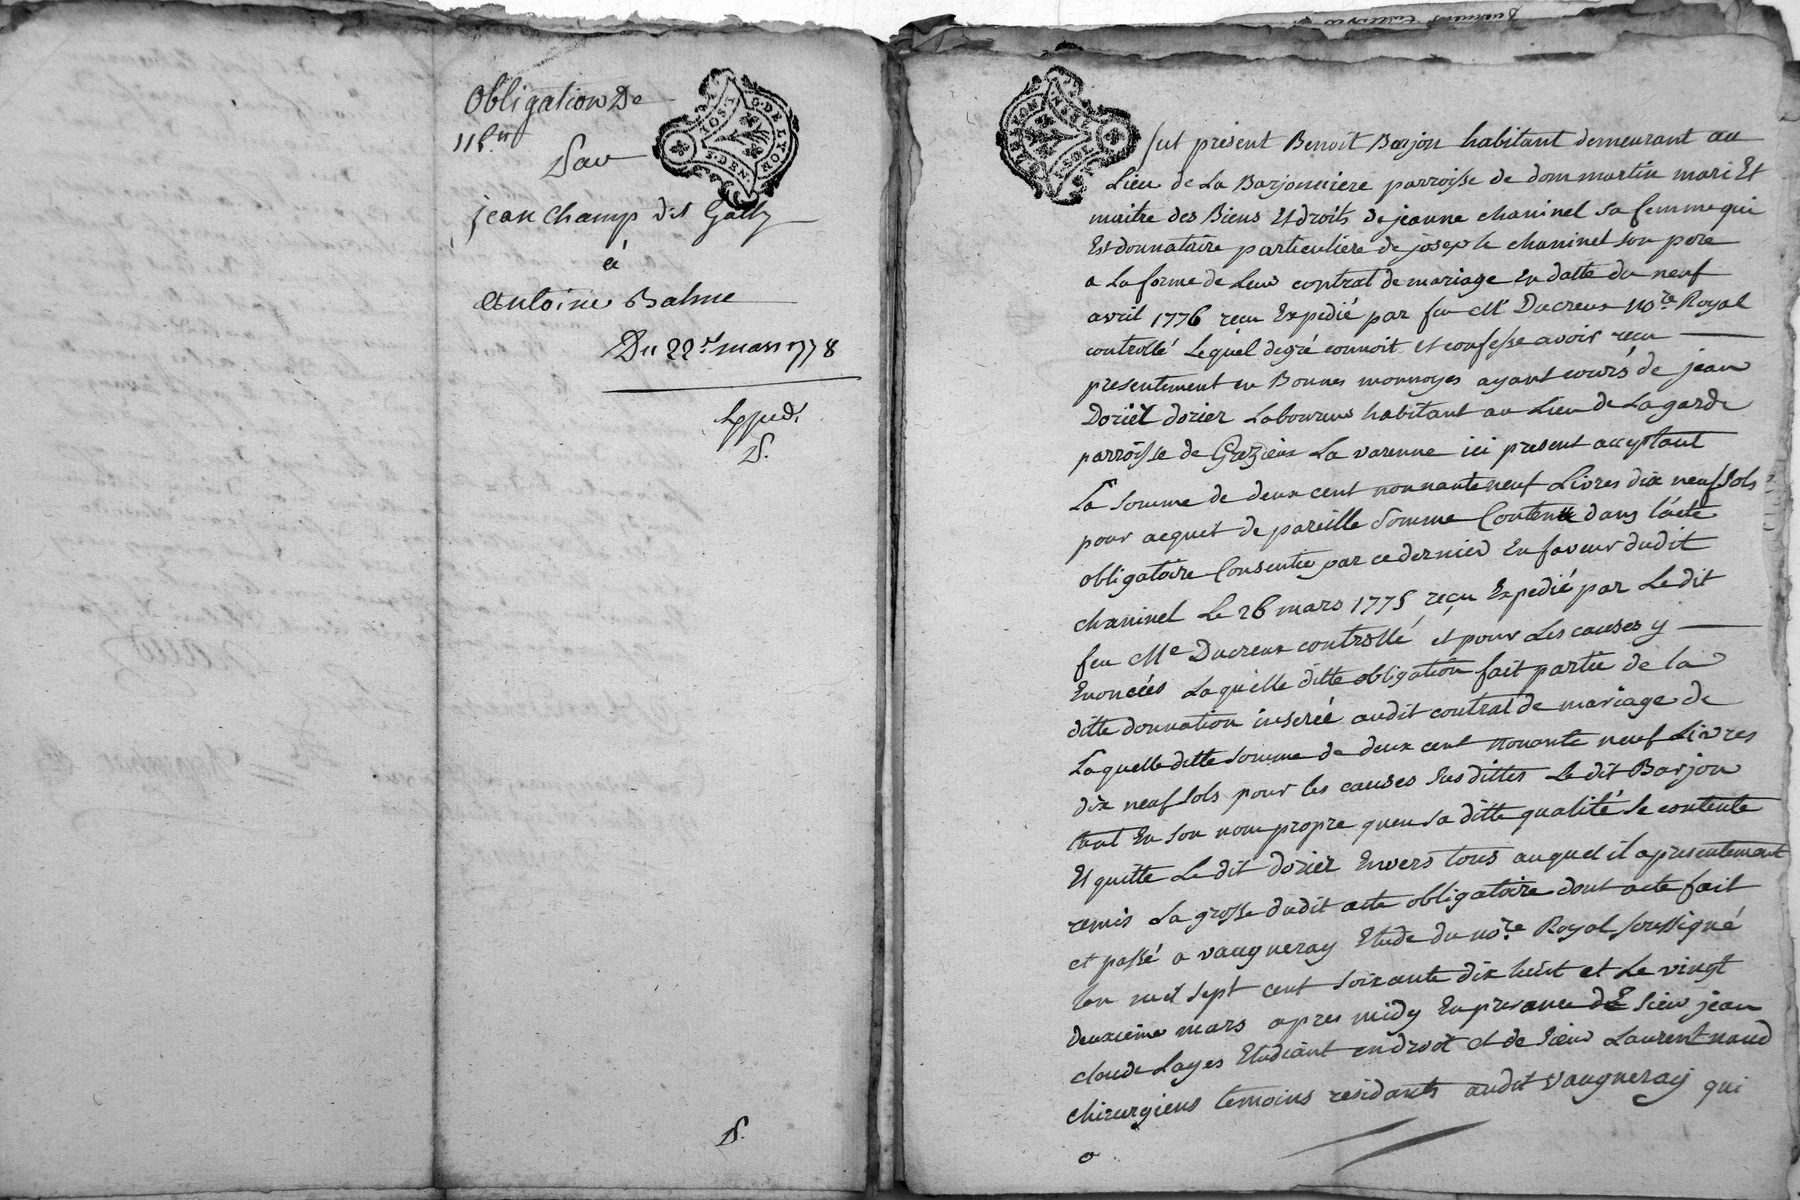 Obligation De
115 ₶
Par
jean Champ dit Gally
à
Antoine Balme
Du 22e. mars 1778
Exped.
S.
S.
fut présent Benoit Barjon habitant demeurant au
Lieu de La Barjonniere parroisse de dommartin mari Et
maitre des Biens Et droits de jeanne chaninel sa femme qui
Est donnataire particuliere de joseph chaninel son pere
a La forme de Leur contrat de mariage En datte du neuf
avril 1776 recu Expedié par feu Me Ducreux nore. Royal
controllé Lequel degré connoit et confesse avoir recu
presentement en Bonnes monnoyes ayant cours de jean
Doriel dorier Laboureur habitant au Lieu de La garde
parroisse de Grezieux La varenne ici present acceptant
La somme de deux cent nonnante neuf Livres dix neuf sols
pour acquit de pareille somme Contenue dans l'acte
obligatoire Consentie par ce dernier En faveur dudit
chaninel Le 26 mars 1775 reçu Expedié par Le dit
feu Me Ducreux controllé et pour Les causes y
Enoncées Laquelle ditte obligation fait partie de la
ditte donnation inserée audit contrat de mariage de
Laquelle ditte somme de deux cent nonante neuf Livres
dix neuf sols pour les causes sus dittes Le dit Barjon
tant En son nom propre quen sa ditte qualité se contente
Et quitte Le dit dorier Envers tous auquel il a presentement
remis La grosse dudit acte obligatoire dont acte fait
et passé a vaugneray Etude du nore. Royal soussigné
Lan mil sept cent soixante dix huit et Le vingt
deuxieme mars apres midy En presence de sieur jean
claude Layes Etudiant en droit et de sieur Laurent naud
chirurgiens temoins residants audit vaugneray qui